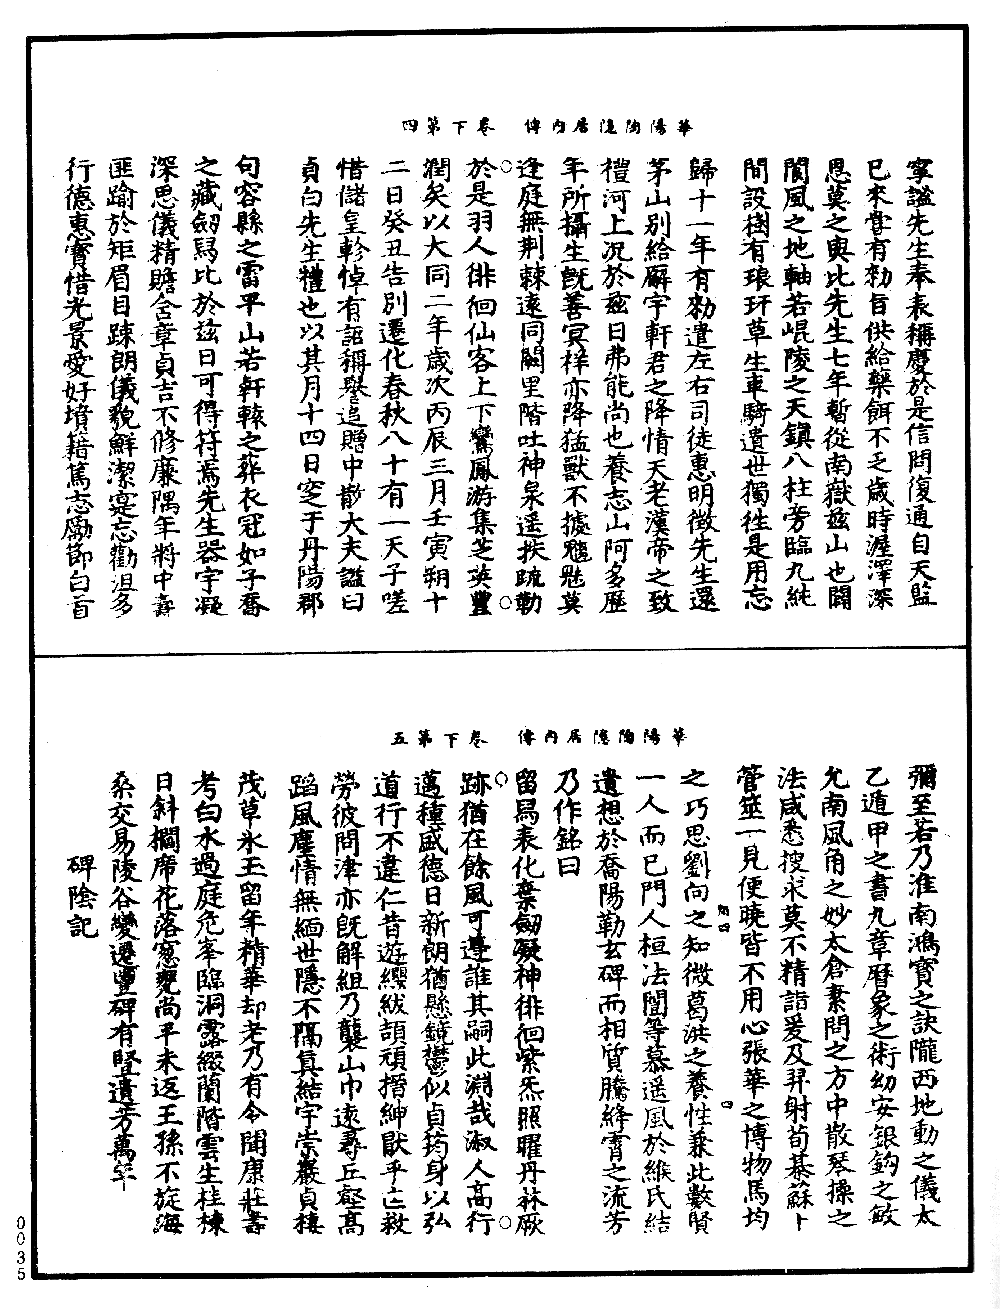 華陽陶隱居內傳　卷下第四
寧謐先生奉表稱慶於是信問復通自天監
已來嘗有勑旨供給藥餌不乏歲時渥澤深
恩莫之與比先生七年暫從南嶽茲山也闢
閬風之地軸若崐陵之天鎮八柱旁臨九純
間設樹有琅玕草生車騎遺世獨往是用忘
歸十一年有勑遣左右司徒惠明徵先生還
茅山別給廨宇軒君之降情天老漢帝之致
禮河上況於茲日弗能尚也養志山阿多歷
年所攝生既善冥祥亦降猛獸不據魑魅莫
逢庭無荆棘遠同闕里階吐神泉遥挾疏勒
於是羽人徘徊仙客上下鸞鳳游集芝英豐
潤矣以大同二年歲次丙辰三月壬寅朔十
二日癸丑告別遷化春秋八十有一天子嗟
惜儲皇軫悼有詔稱譽追贈中散大夫謚曰
貞白先生禮也以其月十四日窆于丹陽郡
句容縣之雷平山若軒轅之葬衣冠如子喬
之藏劒舄比於茲日可得符焉先生器宇凝
深思儀精贍含章貞吉不修廉隅年將中壽
匪踰於矩眉目踈朗儀貌鮮潔寔忘勸沮多
行德惠寶惜光景愛好墳籍篤志勵節白首
華陽陶隱居內傳　卷下第五
彌至若乃淮南鴻寶之訣隴西地動之儀太
乙遁甲之書九章曆象之術幼安銀鈎之敏
允南風角之妙太倉素問之方中散琴操之
法咸悉搜求莫不精詣爰及羿射荀棊蘇卜
管筮一見便曉皆不用心張華之博物馬均
之巧思劉向之知微葛洪之養性兼此數賢
一人而已門人桓法闓等慕遥風於緱氏結
遺想於喬陽勒玄碑而相質騰絳霄之流芳
乃作銘曰
留舄表化棄劒凝神徘徊紫炁照曜丹林厥
跡猶在餘風可遵誰其嗣此淵哉淑人高行
邁種盛德日新朗猶懸鏡鬱似貞筠身以弘
道行不違仁昔遊纓紱頡頏搢紳猒乎亡救
勞彼問津亦既解組乃襲山巾遠尋丘壑高
蹈風塵情無緬世隱不隔真結宇崇巖貞棲
茂草氷玉留年精華却老乃有令聞康莊壽
考白水過庭危峯臨洞露綴蘭階雲生桂棟
日斜攔席花落窓甕尚平未返王孫不旋海
桑交易陵谷變遷豐碑有豎遺芳萬年
碑陰記
四
0035